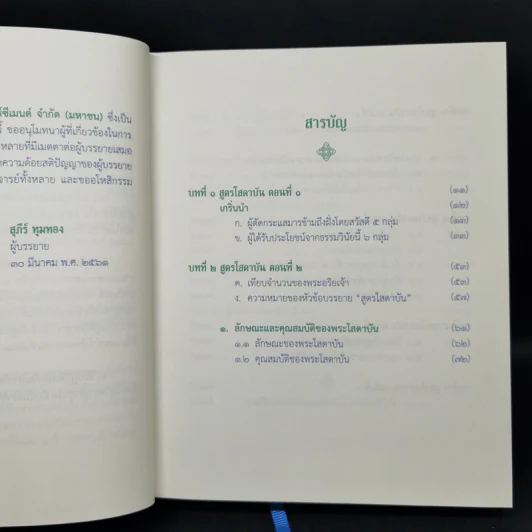 ซีเมนต์ จำกัด (มหาชน) ซึ่งเป็น
ขออนุโมทนาผู้ที่เกี่ยวข้องในการ
หลายที่มีเมตตาต่อผู้บรรยายเสมอ
ความด้อยสติปัญญาของผู้บรรยาย
จารย์ทั้งหลาย และขออโหสิกรรม
สุภีร์ ทุมทอง
ผู้บรรยาย
๓๐ มีนาคม พ.ศ. ๒๕๖๑
สารบัญ
บทที่ ๑ สูตรโสดาบัน ตอนที่ ๑ (๑๑)
เกริ่นนำ (๑๒)
ก. ผู้ตัดกระแสมารข้ามถึงฝั่งโดยสวัสดี ๕ กลุ่ม (๑๓)
ข. ผู้ได้รับประโยชน์จากธรรมวินัยนี้ ๖ กลุ่ม (๓๓)
บทที่ ๒ สูตรโสดาบัน ตอนที่ ๒ (๕๓)
ค. เทียบจำนวนของพระอริยเจ้า (๕๓)
ง. ความหมายของหัวข้อบรรยาย “สูตรโสดาบัน” (๕๗)
๑. ลักษณะและคุณสมบัติของพระโสดาบัน (๖๑)
๑.๑ ลักษณะของพระโสดาบัน (๖๒)
๑.๒ คุณสมบัติของพระโสดาบัน (๗๒)